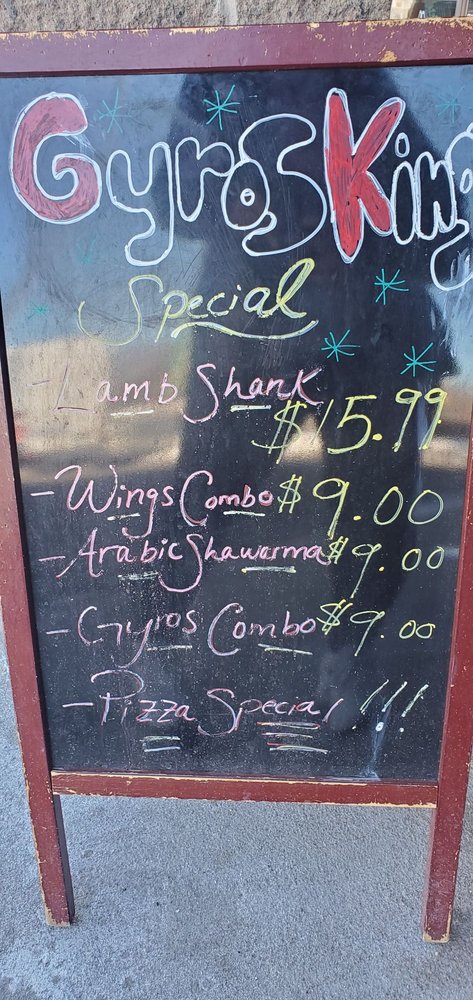 Gyros King
Special
- Lamb Shank
$15.99
- Wings Combo $9.00
- Arabic Shawarma $9.00
- Gyros Combo $9.00
- Pizza Special !!!